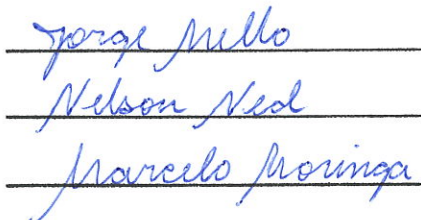 Jorge Mello
Nelson Ned
Marcelo Moringa